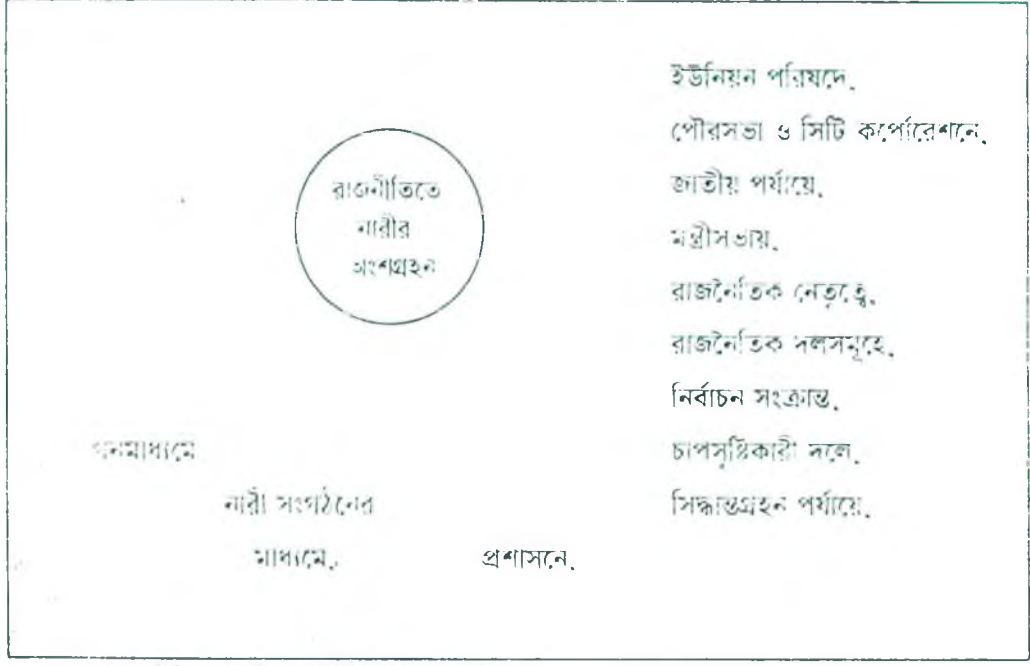 রাজনীতিতে
নারীর
অংশগ্রহন
ইউনিয়ন পরিষদে,
পৌরসভা ও সিটি কর্পোরেশনে,
জাতীয় পর্যায়ে,
মন্ত্রীসভায়,
রাজনৈতিক নেতৃত্বে,
রাজনৈতিক দলসমূহে,
নির্বাচন সংক্রান্ত,
চাপসৃষ্টিকারী দলে,
সিদ্ধান্তগ্রহন পর্যায়ে,
গনমাধ্যমে
নারী সংগঠনের
মাধ্যমে,
প্রশাসনে,